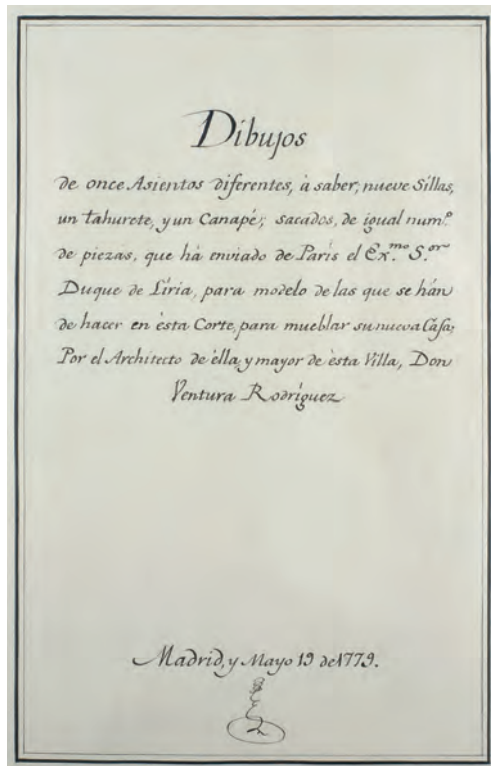 Dibujos
de once Asientos diferentes, à saber; nueve Sillas,
un tahurete, y un Canapé; sacados, de igual num.º
de piezas, que há enviado de París el Ex.mo S.or
Duque de Líria, para modelo de las que se hán
de hacer en èsta Corte, para mueblar su nueva Casa;
Por el Architecto de èlla, y mayor de èsta Villa, Don
Ventura Rodríguez
Madrid, y Mayo 19 de 1779.